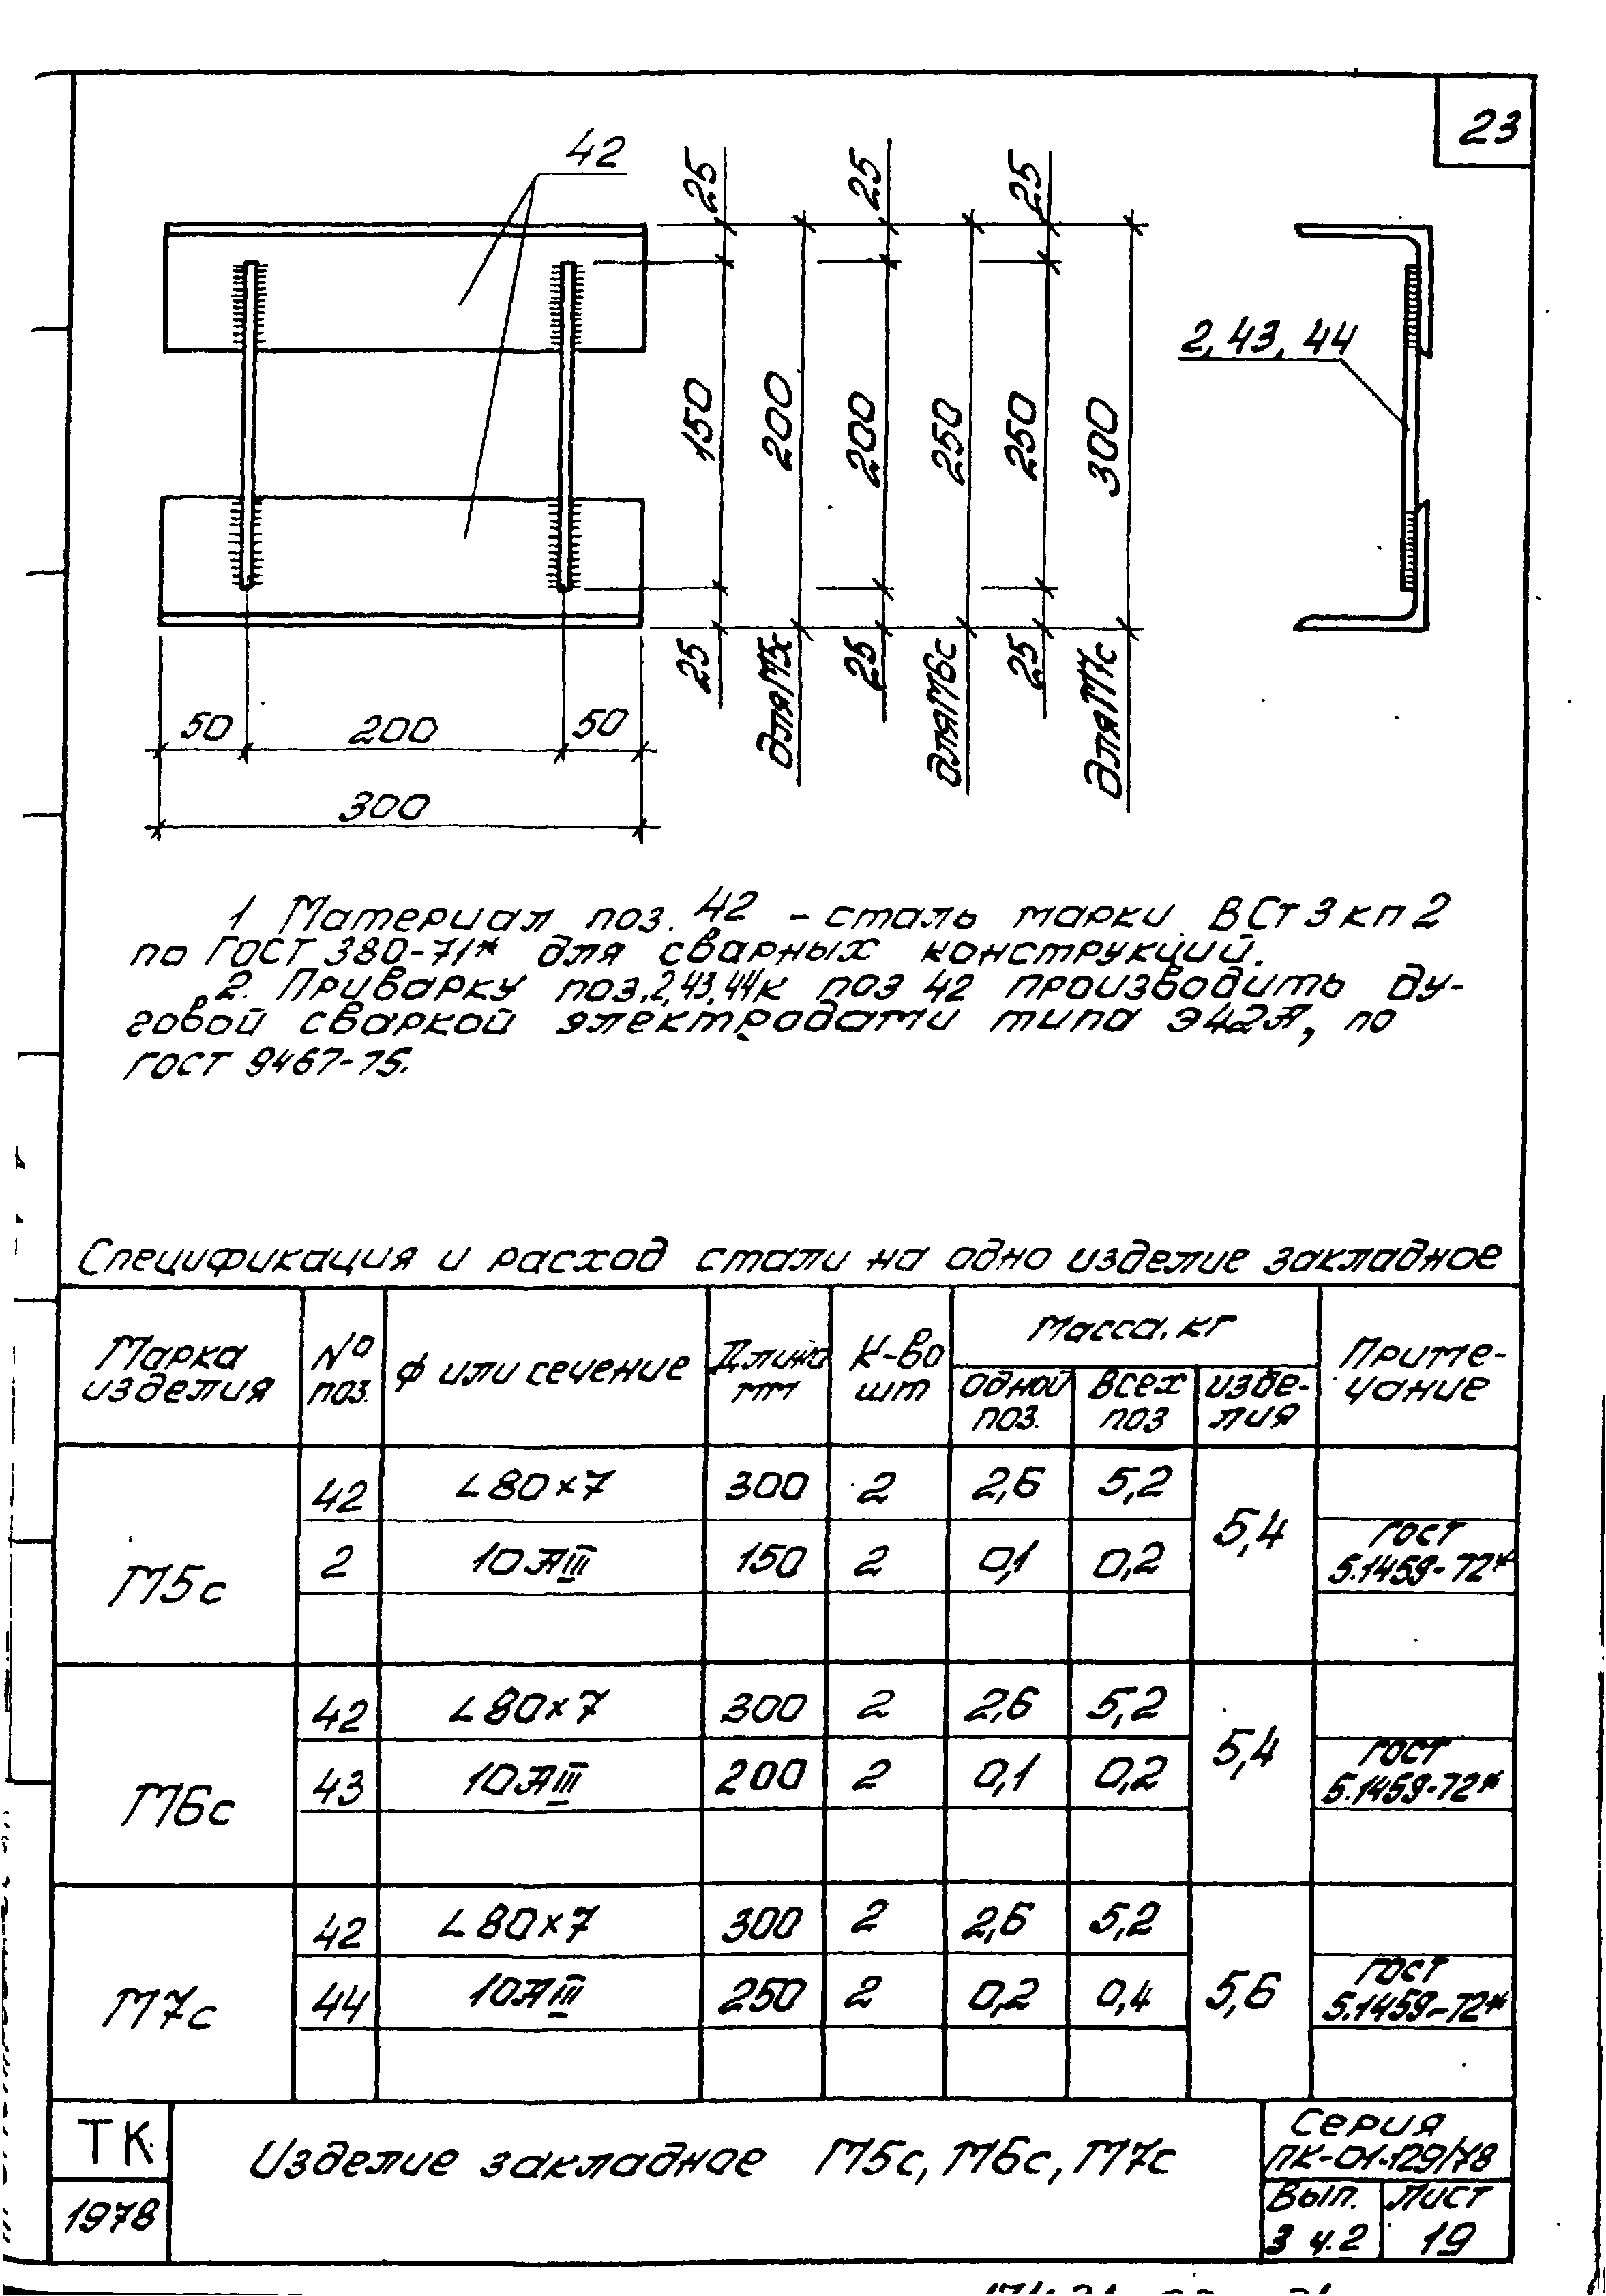 23
42
25 25 25
2, 43, 44
150 200 200 250 250 300
25 для М5с 25 для М6с 25 для М7с
50 200 50
300
1 Материал поз. 42 – сталь марки ВСт3кп2
по ГОСТ 380-71* для сварных конструкций.
2. Приварку поз. 2, 43, 44 к поз 42 производить ду-
говой сваркой электродами типа Э42А, по
ГОСТ 9467-75.
Спецификация и расход стали на одно изделие закладное
Марка изделия | № поз. | ф или сечение | Длина мм | К-во шт | Масса, кг | Приме-чание
одной поз. | всех поз | изде-лия
М5с | 42 | ∟80×7 | 300 | 2 | 2,6 | 5,2 | 5,4
2 | 10АIII | 150 | 2 | 0,1 | 0,2 | ГОСТ 5.1459-72*
М6с | 42 | ∟80×7 | 300 | 2 | 2,6 | 5,2 | 5,4
43 | 10АIII | 200 | 2 | 0,1 | 0,2 | ГОСТ 5.1459-72*
М7с | 42 | ∟80×7 | 300 | 2 | 2,6 | 5,2 | 5,6
44 | 10АIII | 250 | 2 | 0,2 | 0,4 | ГОСТ 5.1459-72*
ТК
1978
Изделие закладное М5с, М6с, М7с
Серия
ПК-01-129/78
Вып. Лист
3 ч.2 19